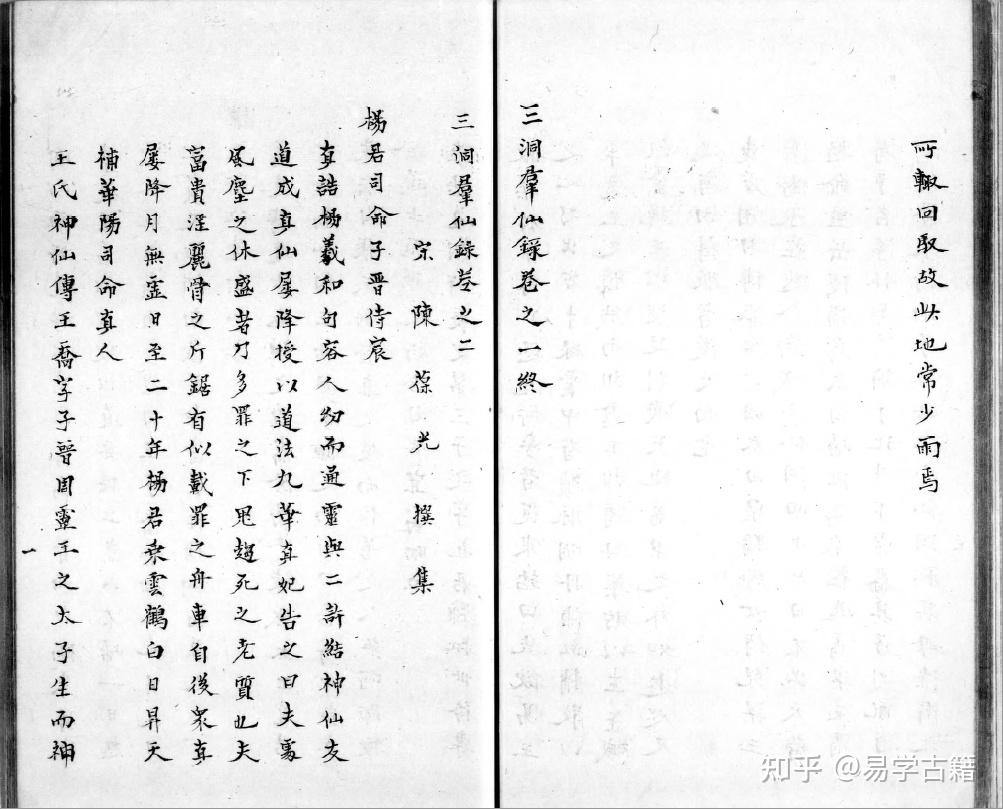 所輒回馭故此地常少雨焉
三洞羣仙錄卷之一終
三洞羣仙錄卷之二
宋陳葆光撰集
楊君司命子晉侍宸
真誥楊羲和句容人幼而通靈與二許結神仙友
道成真仙屢降授以道法九華真妃告之曰夫處
風塵之休盛者乃多罪之下鬼趨死之老質也夫
富貴淫麗骨之斤鋸有似載罪之舟車自後衆真
屢降月無虛日至二十年楊君乘雲鶴白日昇天
補華陽司命真人
王氏神仙傳王喬字子晉周靈王之太子生而神
一
知乎 @易学古籍